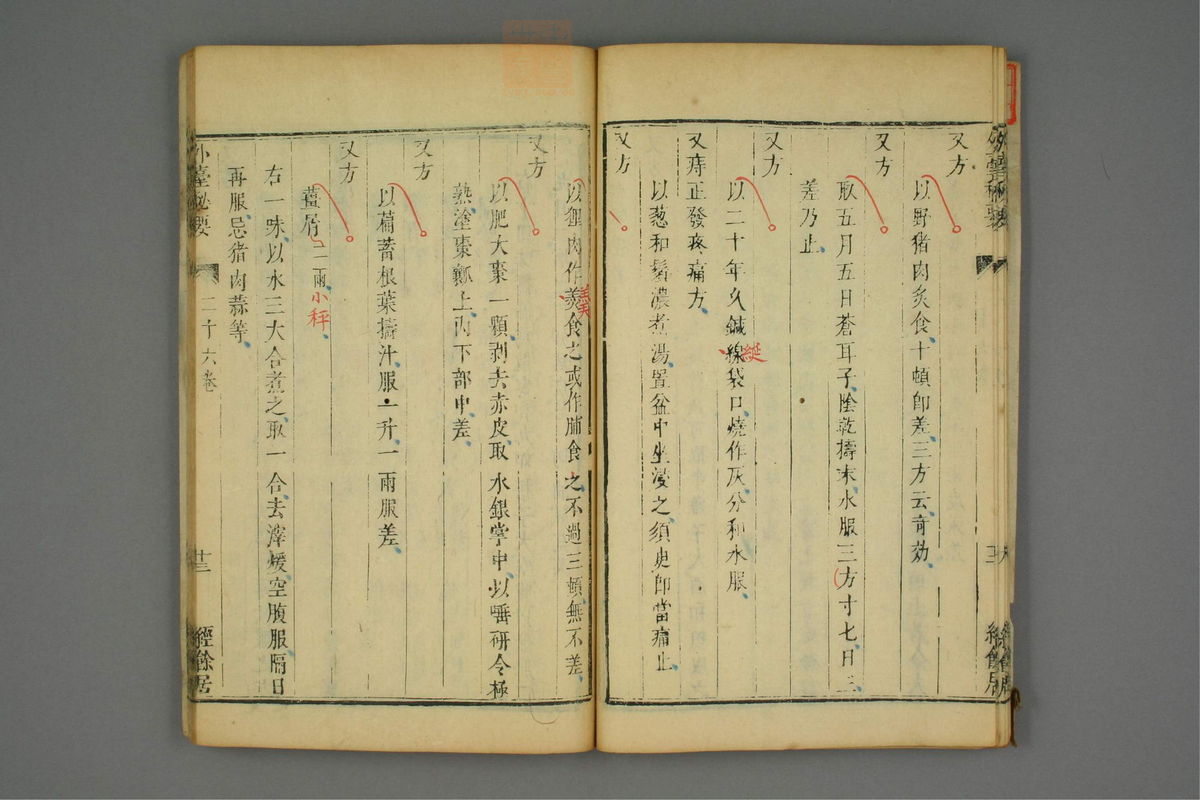 又方
以野猪肉炙食十頓即差三方云奇効
又方
取五月五日蒼耳子陰乾擣末水服三方寸七日三
差乃止
又方
以二十年久鍼線袋口燒作灰分和水服
縱
又痔正發疼痛方
以葱和鬚濃煮湯置盆中坐浸之須臾即當痛止
又方
以狸肉作羮食之或作脯食之不過三頓無不差
羹
又方
以肥大棗一顆剥去赤皮取水銀掌中以唾研令極
熟塗棗瓤上内下部中差
又方
以萹蓄根葉擣汁服一升一兩服差
又方
薑屑二兩
小秤
右一味以水三大合煮之取一合去滓煖空腹服隔日
再服忌猪肉蒜等
外臺秘要
二十六卷
十三
經餘居